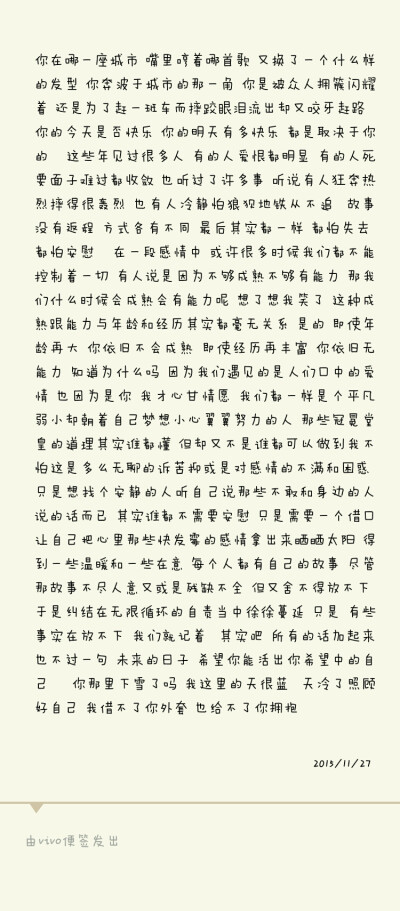 你在哪一座城市 嘴里哼着哪首歌 又换了一个什么样
的发型 你奔波于城市的那一角 你是被众人拥簇闪耀
着 还是为了赶一班车而摔跤眼泪流出却又咬牙赶路
你的今天是否快乐 你的明天有多快乐 都是取决于你
的 这些年见过很多人 有的人爱恨都明显 有的人死
要面子难过都收敛 也听过了许多事 听说有人狂奔热
烈摔得很轰烈 也有人冷静怕狼狈地铁从不追 故事
没有返程 方式各有不同 最后其实都一样 都怕失去
都怕安慰 在一段感情中 或许很多时候我们都不能
控制着一切 有人说是因为不够成熟不够有能力 那我
们什么时候会成熟会有能力呢 想了想我笑了 这种成
熟跟能力与年龄和经历其实都毫无关系 是的 即使年
龄再大 你依旧不会成熟 即使经历再丰富 你依旧无
能力 知道为什么吗 因为我们遇见的是人们口中的爱
情 也因为是你 我才心甘情愿 我们都一样是个平凡
弱小却朝着自己梦想小心翼翼努力的人 那些冠冕堂
皇的道理其实谁都懂 但却又不是谁都可以做到我不
怕这是多么无聊的诉苦抑或是对感情的不满和困惑
只是想找个安静的人听自己说那些不敢和身边的人
说的话而已 其实谁都不需要安慰 只是需要一个借口
让自己把心里那些快发霉的感情拿出来晒晒太阳 得
到一些温暖和一些在意 每个人都有自己的故事 尽管
那故事不尽人意又或是残缺不全 但又舍不得放不下
于是纠结在无限循环的自责当中徐徐蔓延 只是 有些
事实在放不下 我们就记着 其实吧 所有的话加起来
也不过一句 未来的日子 希望你能活出你希望中的自
己 你那里下雪了吗 我这里的天很蓝 天冷了照顾
好自己 我借不了你外套 也给不了你拥抱
2013/11/27
由vivo便签发出